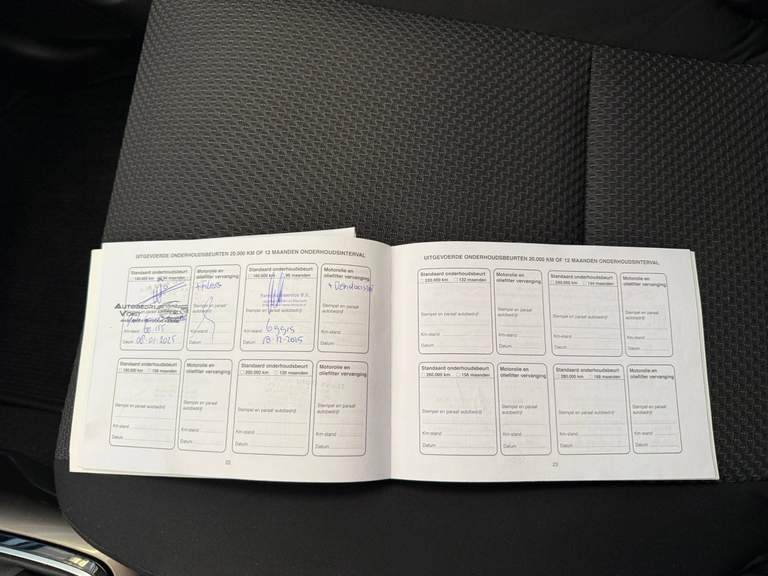 UITGEVOERDE ONDERHOUDSBEURTEN 20.000 KM OF 12 MAANDEN ONDERHOUDSINTERVAL
Standaard onderhoudsbeurt
140.000 km
maanden
Motorolie en
oliefilter vervanging
Stempel en paraaf
autobedrijf
AUTOBEDRIJF
Km-stand
Datum 08-01-2025
Standaard onderhoudsbeurt
160.000 km 96 maanden
Motorolie en
oliefilter vervanging
Stempel en paraaf
autobedrijf
Km-stand
Datum 18-12-2025
Standaard onderhoudsbeurt
180.000 km 108 maanden
Motorolie en
oliefilter vervanging
Stempel en paraaf autobedrijf
Stempel en paraaf
autobedrijf
Km-stand
Km-stand
Datum
Datum
Standaard onderhoudsbeurt
200.000 km 120 maanden
Motorolie en
oliefilter vervanging
Stempel en paraaf autobedrijf
Stempel en paraaf
autobedrijf
Km-stand
Km-stand
Datum
Datum
22
UITGEVOERDE ONDERHOUDSBEURTEN 20.000 KM OF 12 MAANDEN ONDERHOUDSINTERVAL
Standaard onderhoudsbeurt
220.000 km 132 maanden
Motorolie en
oliefilter vervanging
Stempel en paraaf autobedrijf
Stempel en paraaf
autobedrijf
Km-stand
Km-stand
Datum
Datum
Standaard onderhoudsbeurt
240.000 km 144 maanden
Motorolie en
oliefilter vervanging
Stempel en paraaf autobedrijf
Stempel en paraaf
autobedrijf
Km-stand
Km-stand
Datum
Datum
Standaard onderhoudsbeurt
260.000 km 156 maanden
Motorolie en
oliefilter vervanging
Stempel en paraaf autobedrijf
Stempel en paraaf
autobedrijf
Km-stand
Km-stand
Datum
Datum
Standaard onderhoudsbeurt
280.000 km 168 maanden
Motorolie en
oliefilter vervanging
Stempel en paraaf autobedrijf
Stempel en paraaf
autobedrijf
Km-stand
Km-stand
Datum
Datum
23